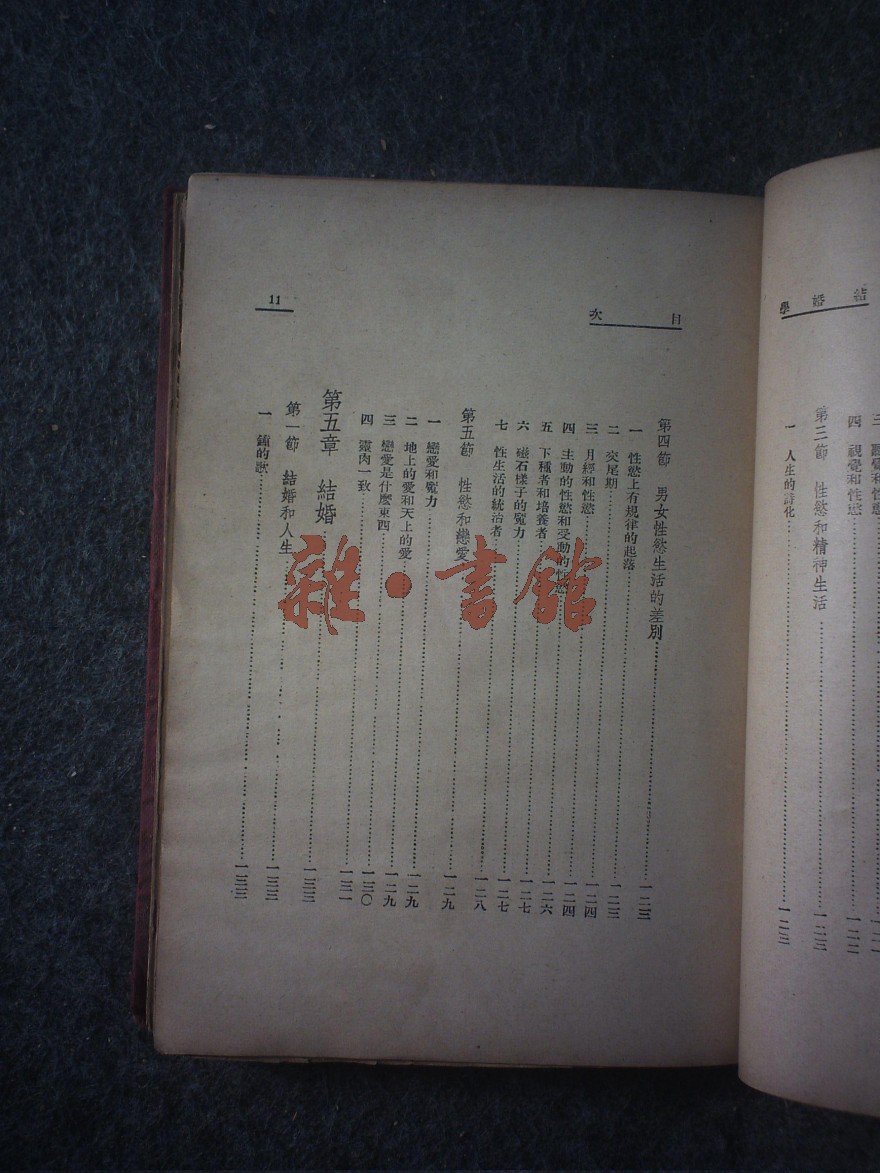 結婚學
四 視覺和性慾
第三節 性慾和精神生活
一 人生的詩化……一二三
目次
11
第四節 男女性慾生活的差別……一二三
一 性慾上有規律的起落……一二三
二 交尾期……一二四
三 月經和性慾……一二四
四 主動的性慾和受動的性慾……一二六
五 下種者和培養者……一二七
六 磁石樣子的魔力……一二七
七 性生活的統治者……一二八
第五節 性慾和戀愛……一二九
一 戀愛和魔力……一二九
二 地上的愛和天上的愛……一二九
三 戀愛是什麼東西……一三〇
四 靈肉一致……一三一
第五章 結婚……一三三
第一節 結婚和人生……一三三
一 鐘的獸……一三三
雜·書館